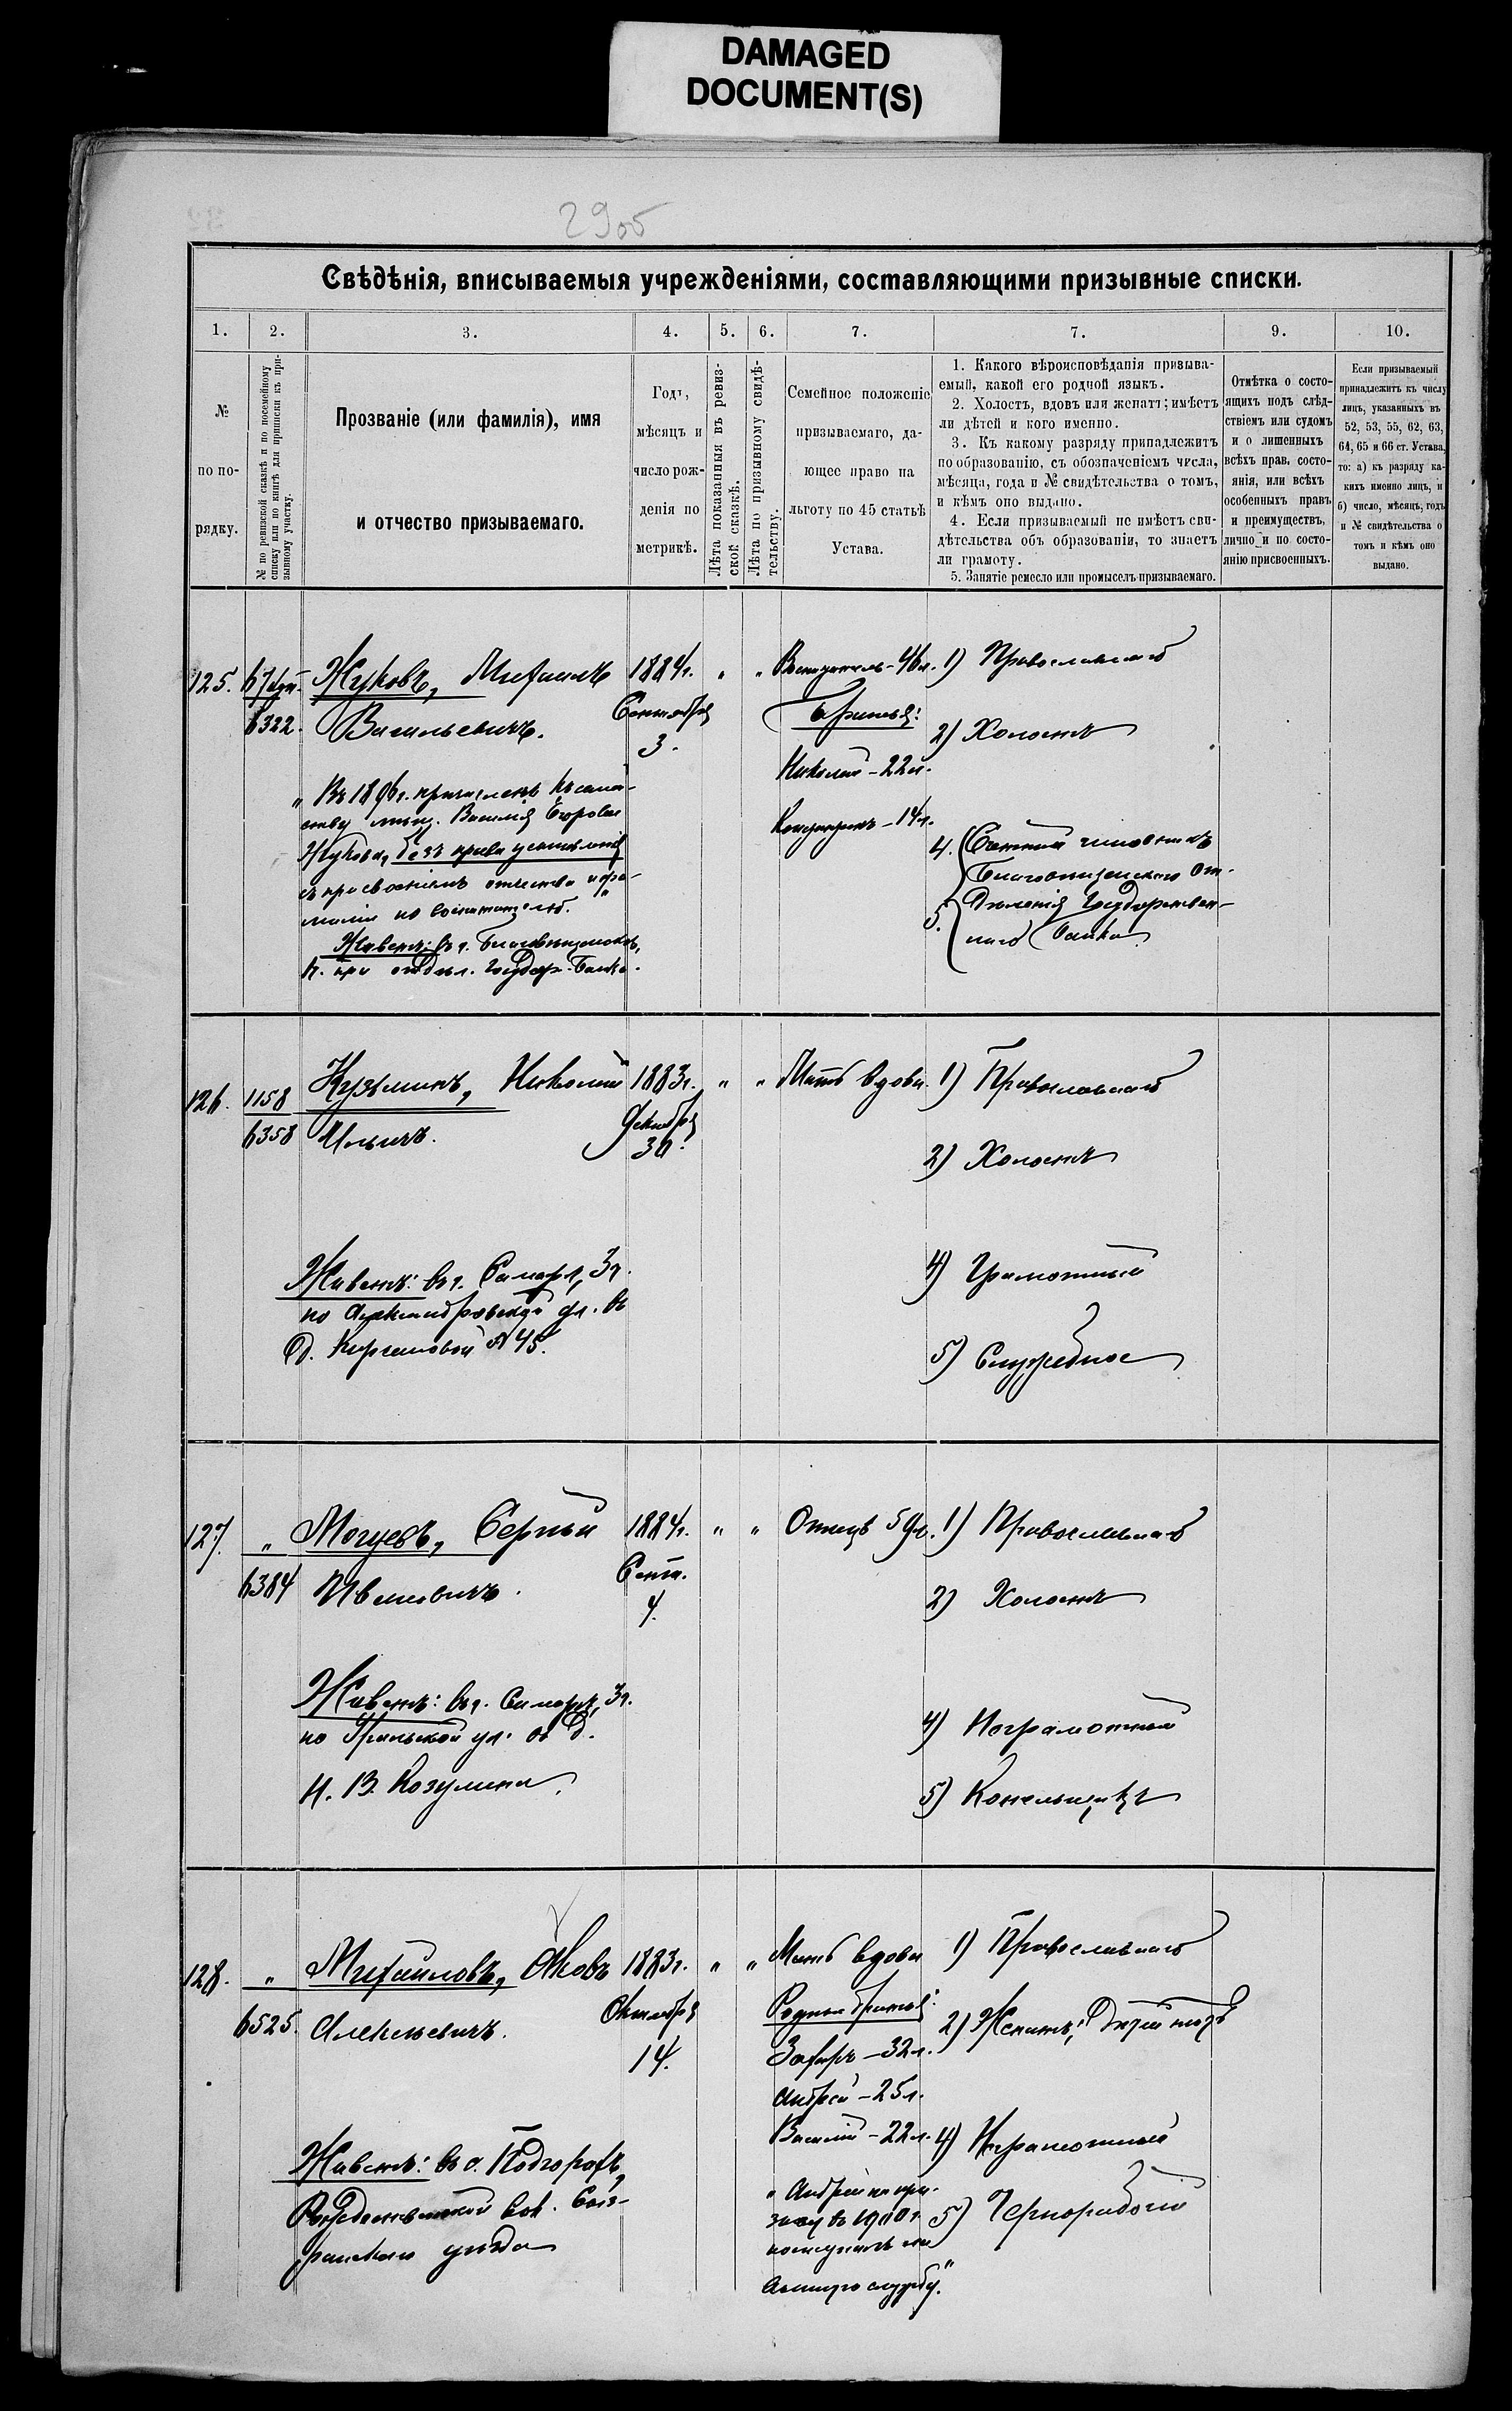 DAMAGED
DOCUMENT(S)
Свѣдѣнія, вписываемыя учрежденіями, составляющими призывные списки.
1. 2. 3. 4. 5. 6. 7. 7. 9. 10.
№
по по-
рядку.
№ по ревизской сказкѣ и по посемейному
списку или по книгѣ для приписки къ при-
зывному участку.
Прозваніе (или фамилія), имя
и отчество призываемаго.
Годъ,
мѣсяцъ и
число рож-
денія по
метрикѣ.
Лѣта показанныя въ ревиз-
ской сказкѣ.
Лѣта по призывному свидѣ-
тельству.
Семейное положеніе
призываемаго, да-
ющее право на
льготу по 45 статьѣ
Устава.
1. Какого вѣроисповѣданія призыва-
емый, какой его родной языкъ.
2. Холостъ, вдовъ или женатъ; имѣетъ
ли дѣтей и кого именно.
3. Къ какому разряду принадлежитъ
по образованію, съ обозначеніемъ числа,
мѣсяца, года и № свидѣтельства о томъ,
и кѣмъ оно выдано.
4. Если призываемый не имѣетъ сви-
дѣтельства объ образованіи, то знаетъ
ли грамоту.
5. Занятіе ремесло или промыселъ призываемаго.
Отмѣтка о состо-
ящихъ подъ слѣд-
ствіемъ или судомъ
и о лишенныхъ
всѣхъ прав. состо-
янія, или всѣхъ
особенныхъ правъ
и преимуществъ,
лично и по состо-
янію присвоенныхъ.
Если призываемый
принадлежитъ къ числу
лицъ, указанныхъ въ
52, 53, 55, 62, 63,
64, 65 и 66 ст. Устава,
то: а) къ разряду ка-
кихъ именно лицъ, и
б) число, мѣсяцъ, годъ
и № свидѣтельства о
томъ и кѣмъ оно
выдано.
125.
6322.
Жуковъ, Михаилъ
Васильевичъ.
1884г.
Сентября
3.
" "
Воспитатель - 46л.
Братья:
Николай - 22л.
- 14л.
1) Православнаго
2) Холостъ
4.
5.
чиновникъ
Благовѣщенскаго От-
дѣленія Государствен-
наго банка
" Въ 189 г. причисленъ къ семей-
ству мѣщ. Василія Егорова
Жукова, безъ права усыновленія
съ присвоеніемъ отчества и фа-
миліи по воспитателю."
Живетъ: въ г. Благовѣщенскѣ,
при отдѣл. Государ. Банка.
126.
1158
6358
Кузьминъ, Николай
Ильичъ.
1883г.
Декабря
30.
" "
Мать вдова.
1) Православнаго
2) Холостъ
4) Грамотный
5) Служебное
Живетъ: въ г. Самарѣ, 3ч.
по Александровской ул. въ
д. № 45.
127.
"
6384
Могуевъ, Сергѣй
Ивановичъ.
1884г.
Сент.
4.
" "
Отецъ 59л.
1) Православнаго
2) Холостъ
4) Неграмотный
5) Котельщикъ
Живетъ: въ г. Самарѣ, 3ч.
по Уральской ул. въ д.
Н. В. Козулина.
128.
"
6525.
Михайловъ, Яковъ
Алексѣевичъ.
1883г.
Октября
14.
" "
Мать вдова
Родные братья:
Захаръ - 32л.
Андрей - 25л.
Василій - 22л.
" Андрей по при-
зыву въ 1900г.
поступилъ на
дѣйств. службу."
1) Православнаго
2) Женатъ, дѣтей нѣтъ
4) Неграмотный
5) Чернорабочій
Живетъ: въ с. Подгорахъ,
Рождественской вол. Сыз-
ранскаго уѣзда